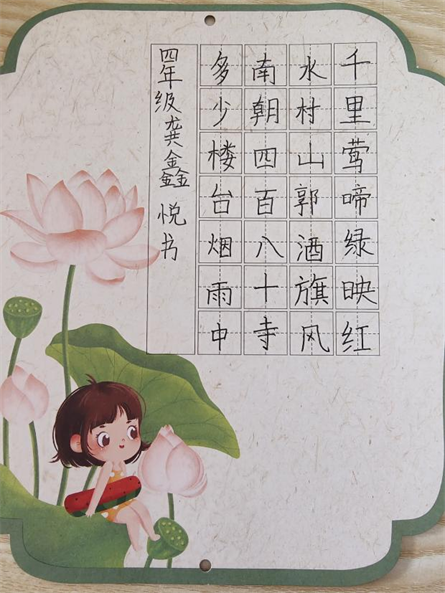 千里莺啼绿映红
水村山郭酒旗风
南朝四百八十寺
多少楼台烟雨中
四年级龚鑫悦书